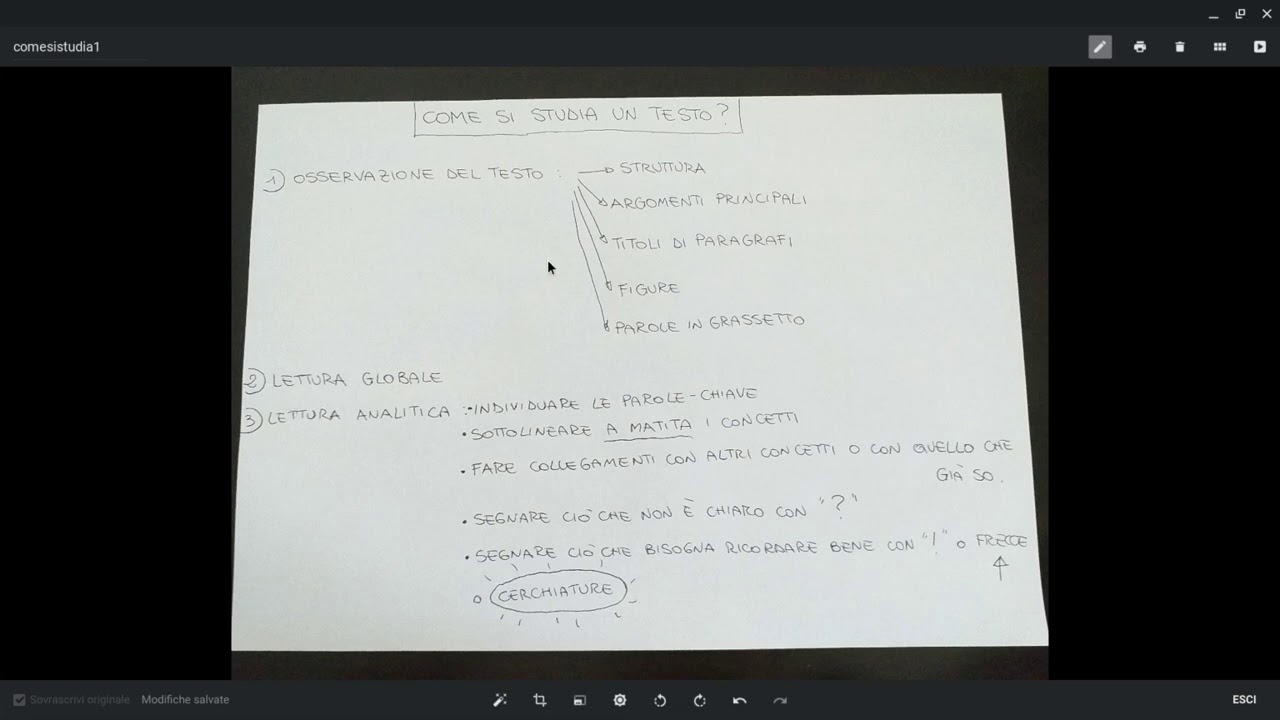 comesistudia1
COME SI STUDIA UN TESTO?
1) OSSERVAZIONE DEL TESTO : STRUTTURA
ARGOMENTI PRINCIPALI
TITOLI DI PARAGRAFI
FIGURE
PAROLE IN GRASSETTO
2) LETTURA GLOBALE
3) LETTURA ANALITICA : • INDIVIDUARE LE PAROLE-CHIAVE
• SOTTOLINEARE A MATITA I CONCETTI
• FARE COLLEGAMENTI CON ALTRI CONCETTI O CON QUELLO CHE
GIÀ SO.
• SEGNARE CIÒ CHE NON È CHIARO CON "?"
• SEGNARE CIÒ CHE BISOGNA RICORDARE BENE CON "!" O FRECCE
O CERCHIATURE
Sovrascrivi originale Modifiche salvate ESCI